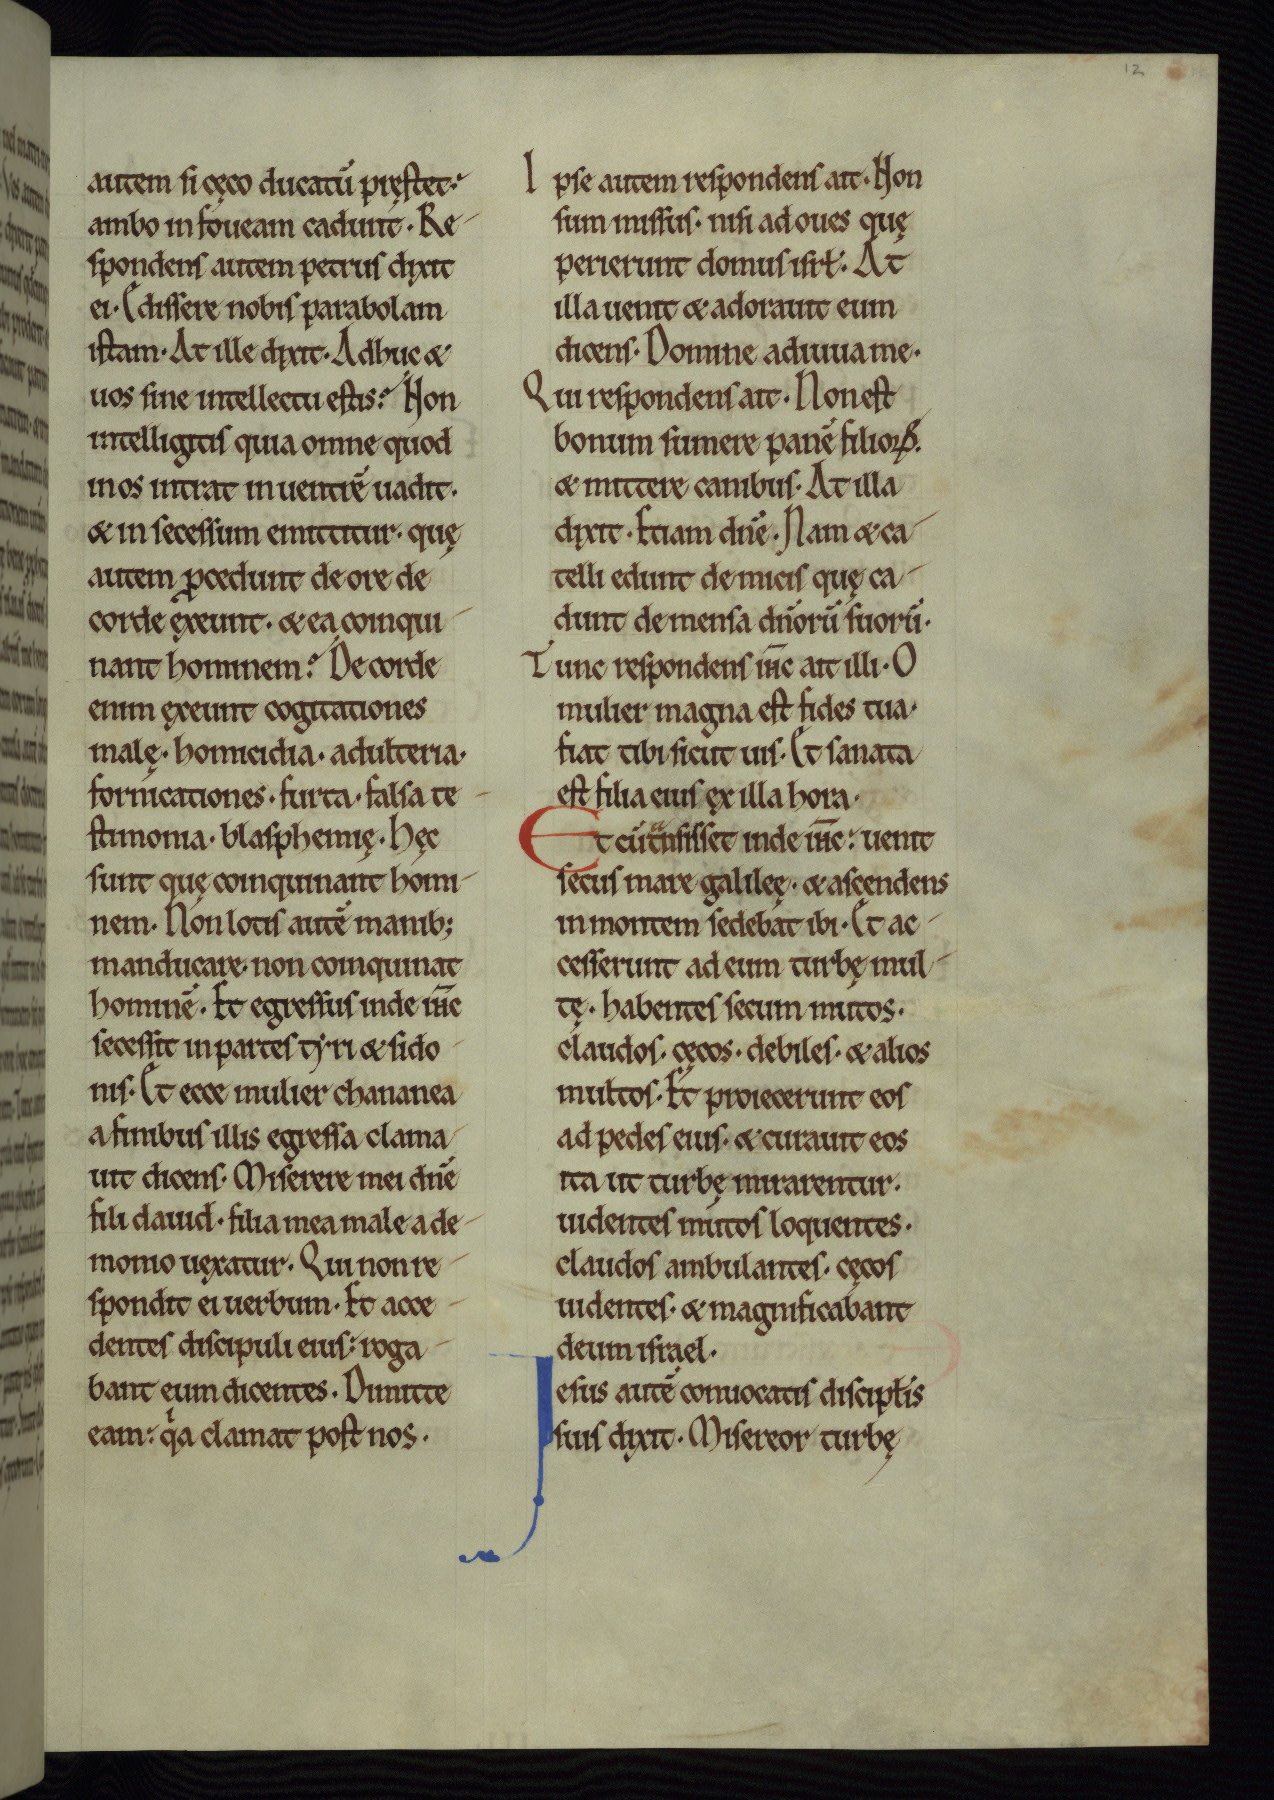 12
autem si cęco ducatū pręstet:
ambo in foueam cadunt. Re-
spondens autem petrus dixit
ei. Edissere nobis parabolam
istam. At ille dixit. Adhuc &
uos sine intellectu estis? Non
intelligitis quia omne quod
in os intrat in uentrē uadit.
& in secessum emittitur. quę
autem ꝓcedunt de ore de
corde exeunt. & ea coinqui-
nant hominem? De corde
enim exeunt cogitationes
malę. homicidia. adulteria.
fornicationes. furta. falsa te-
stimonia. blasphemię. Hęc
sunt quę coinquinant homi-
nem. Non lotis autē manib;
manducare. non coinquinat
hominē. Et egressus inde iħc̄
secessit in partes tyri & sido-
nis. Et ecce mulier chananea
a finibus illis egressa clama-
uit dicens. Miserere mei dn̄e
fili dauid. filia mea male a de-
monio uexatur. Qui non re-
spondit ei uerbum. Et acce-
dentes discipuli eius: roga-
bant eum dicentes. Dimitte
eam: qͥa clamat post nos.
Ipse autem respondens ait. Non
sum missus. nisi ad oues quę
perierunt domus isrł. At
illa uenit & adorauit eum
dicens. Domine adiuua me.
Qui respondens ait. Non est
bonum sumere panē filioꝝ.
& mittere canibus. At illa
dixit. Etiam dn̄e. Nam & ca-
telli edunt de micis quę ca-
dunt de mensa dn̄orū suorū.
Tunc respondens iħc̄ ait illi. O
mulier magna est fides tua.
fiat tibi sicut uis. Et sanata
est filia eius ex illa hora.
Et cū tᵃnsisset inde iħc̄: uenit
secus mare galileę. & ascendens
in montem sedebat ibi. Et ac-
cesserunt ad eum turbę mul-
tę. habentes secum mutos.
claudos. cęcos. debiles. & alios
multos. Et proiecerunt eos
ad pedes eius. & curauit eos
ita ut turbę mirarentur.
uidentes mutos loquentes.
claudos ambulantes. cęcos
uidentes. & magnificabant
deum israel.
Iesus autē conuocatis discipłis
suis dixit. Misereor turbę